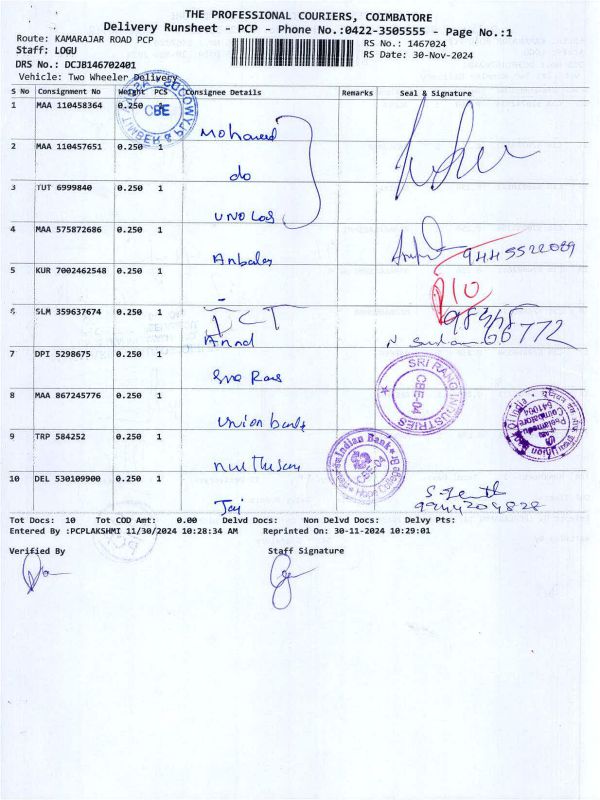 THE PROFESSIONAL COURIERS, COIMBATORE
Delivery Runsheet - PCP - Phone No.:0422-3505555 - Page No.:1
Route: KAMARAJAR ROAD PCP
RS No.: 1467024
Staff: LOGU
RS Date: 30-Nov-2024
DRS No.: DCJB146702401
Vehicle: Two Wheeler Delivery
S No Consignment No Weight PCS Consignee Details Remarks Seal & Signature
1 MAA 110458364 0.250
CBE
TIMBER & PLYWOODS
Mohameed
2 MAA 110457651 0.250 1
do
3 TUT 6999840 0.250 1
4 MAA 575872686 0.250 1
9445522089
5 KUR 7002462548 0.250 1
6 SLM 359637674 0.250 1
Anand
66772
7 DPI 5298675 0.250 1
SRI RANG INDUSTRIES
CBE-04
8 MAA 867245776 0.250 1
Union bank
Peelamedu
Coimbatore
9 TRP 584252 0.250 1
Indian Bank
10 DEL 530109900 0.250 1
Jai
9944204828
Tot Docs: 10 Tot COD Amt: 0.00 Delvd Docs: Non Delvd Docs: Delvy Pts:
Entered By :PCPLAKSHMI 11/30/2024 10:28:34 AM Reprinted On: 30-11-2024 10:29:01
Verified By Staff Signature